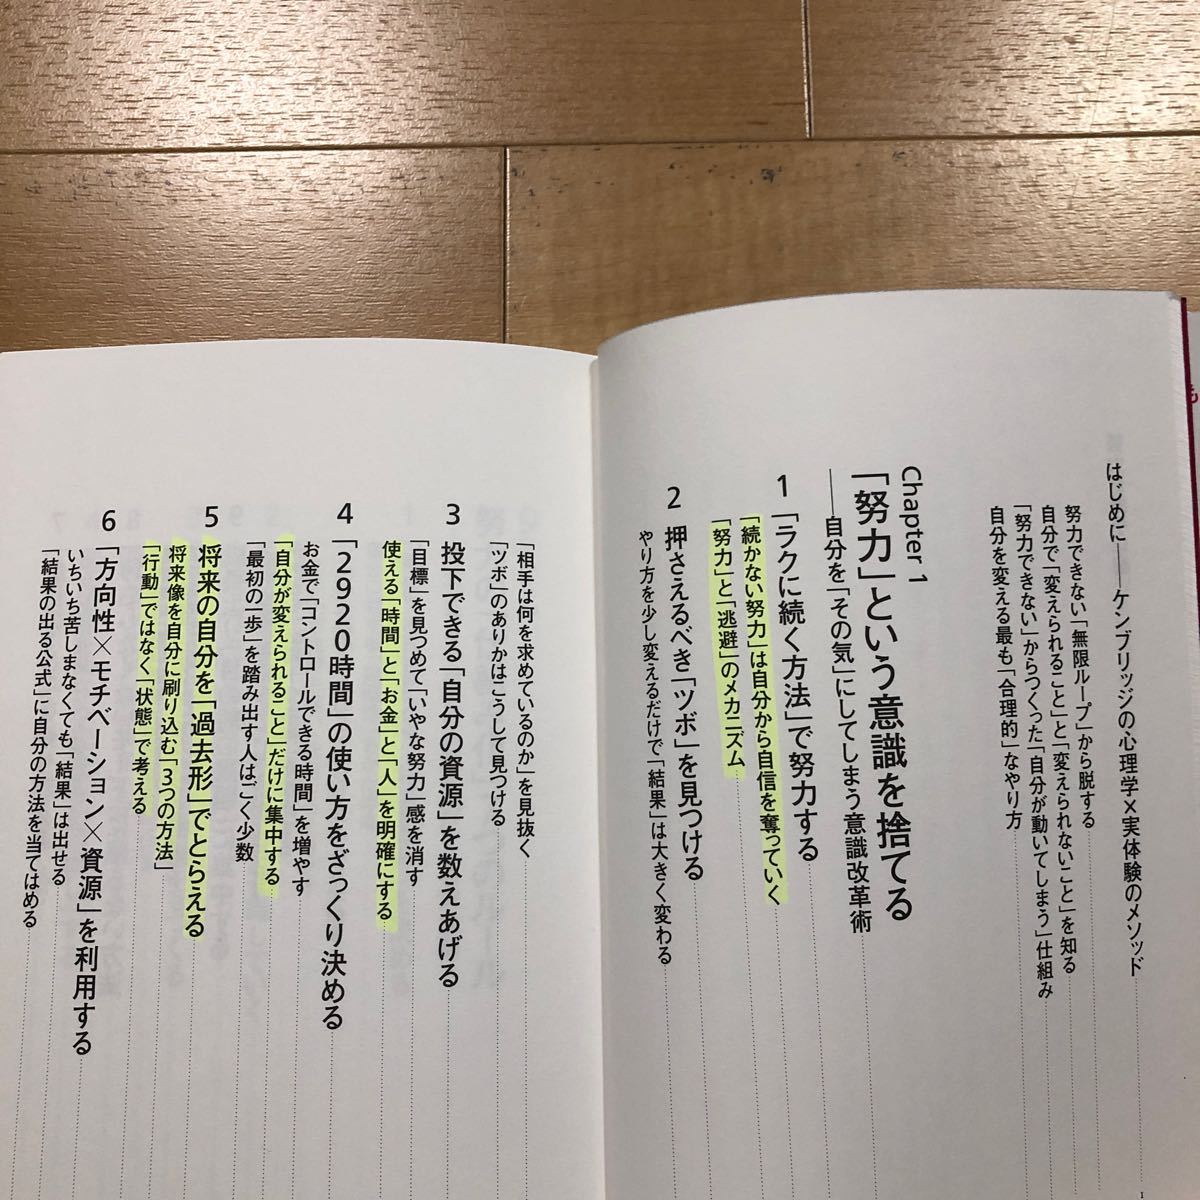 はじめに――ケンブリッジの心理学×実体験のメソッド
努力できない「無限ループ」から脱する
自分で「変えられること」と「変えられないこと」を知る
「努力できない」からつくった「自分が動いてしまう」仕組み
自分を変える最も「合理的」なやり方
Chapter 1
「努力」という意識を捨てる
――自分を「その気」にしてしまう意識改革術
1 「ラクに続く方法」で努力する
「続かない努力」は自分から自信を奪っていく
「努力」と「逃避」のメカニズム
2 押さえるべき「ツボ」を見つける
やり方を少し変えるだけで「結果」は大きく変わる
「相手は何を求めているのか」を見抜く
「ツボ」のありかはこうして見つける
3 投下できる「自分の資源」を数えあげる
「目標」を見つめて「いやな努力」感を消す
使える「時間」と「お金」と「人」を明確にする
4 「2920時間」の使い方をざっくり決める
お金で「コントロールできる時間」を増やす
「自分が変えられること」だけに集中する
「最初の一歩」を踏み出す人はごく少数
5 将来の自分を「過去形」でとらえる
将来像を自分に刷り込む「3つの方法」
「行動」ではなく「状態」で考える
6 「方向性×モチベーション×資源」を利用する
いちいち苦しまなくても「結果」は出せる
「結果の出る公式」に自分の方法を当てはめる